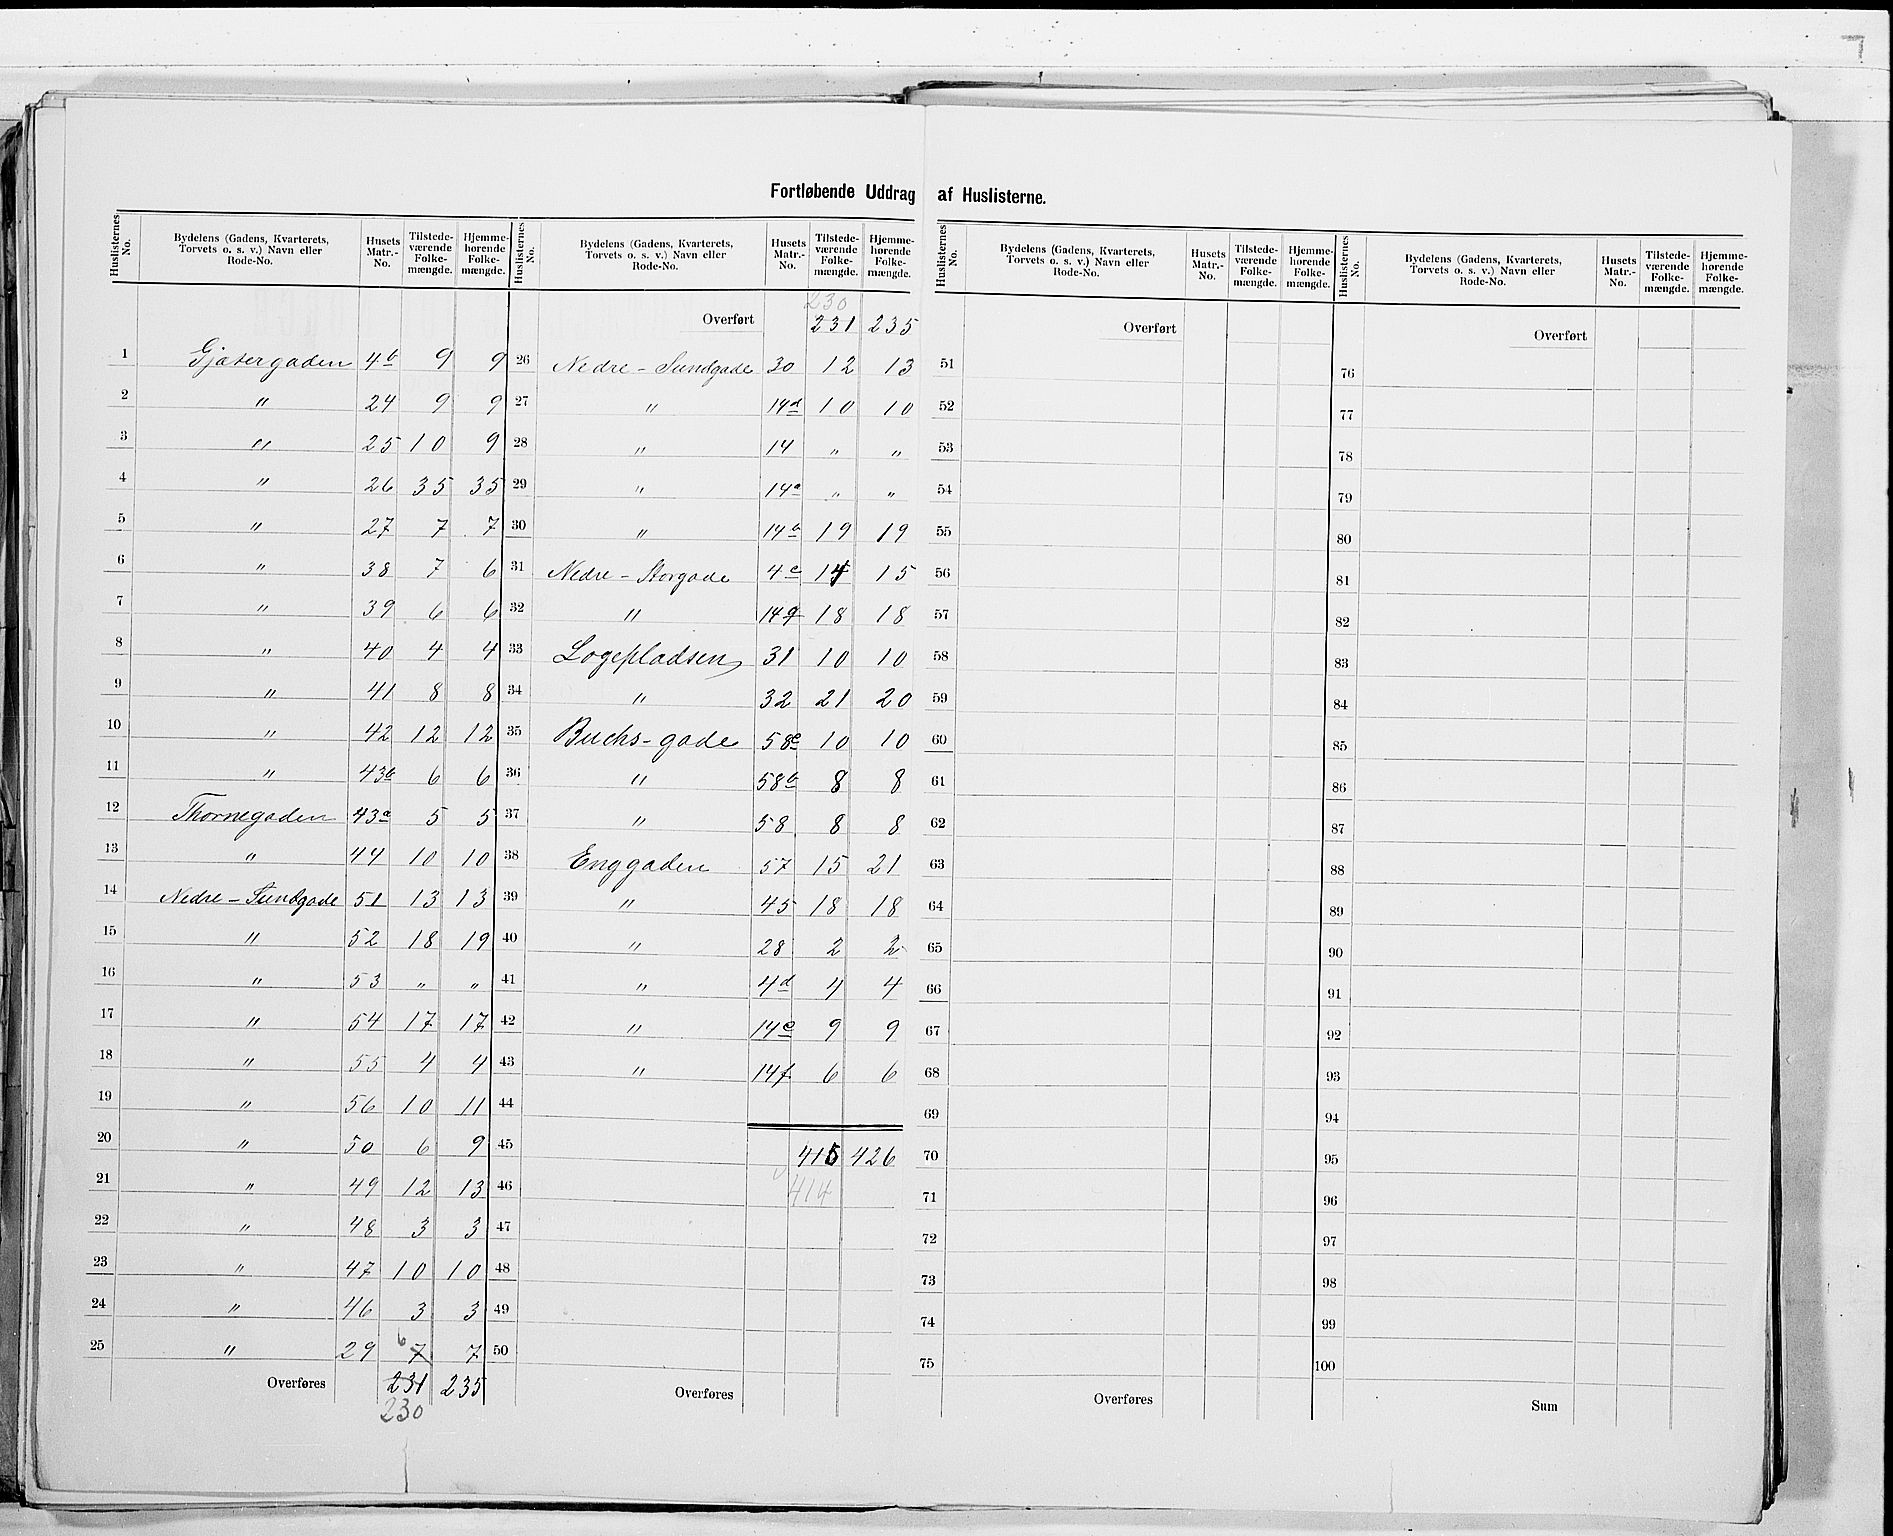 Fortløbende Uddrag af Huslisterne.
Huslisternes No. Bydelens (Gadens, Kvarterets, Torvets o. s. v.) Navn eller Rode-No. Husets Matr.-No. Tilstedeværende Folkemængde. Hjemmehørende Folkemængde.
1 Gjætergaden 4b 9 9
2 " 24 9 9
3 " 25 10 9
4 " 26 35 35
5 " 27 7 7
6 " 38 7 6
7 " 39 6 6
8 " 40 4 4
9 " 41 8 8
10 " 42 12 12
11 " 43b 6 6
12 Thornegaden 43a 5 5
13 " 44 10 10
14 Nedre-Sundgade 51 13 13
15 " 52 18 19
16 " 53 " "
17 " 54 17 17
18 " 55 4 4
19 " 56 10 11
20 " 50 6 9
21 " 49 12 13
22 " 48 3 3
23 " 47 10 10
24 " 46 3 3
25 " 29 6 7 7
Overføres 231 235
230
Huslisternes No. Bydelens (Gadens, Kvarterets, Torvets o. s. v.) Navn eller Rode-No. Husets Matr.-No. Tilstedeværende Folkemængde. Hjemmehørende Folkemængde.
230
Overført 231 235
26 Nedre-Sundgade 30 12 13
27 " 14d 10 10
28 " 14 " "
29 " 14a " "
30 " 14b 19 19
31 Nedre-Storgade 4c 14 15
32 " 14g 18 18
33 Logepladsen 31 10 10
34 " 32 21 20
35 Buchs-gade 58c 10 10
36 " 58b 8 8
37 " 58 8 8
38 Enggaden 57 15 21
39 " 45 18 18
40 " 28 2 2
41 " 4d 4 4
42 " 14e 9 9
43 " 14f 6 6
44
45 415 426
46 414
47
48
49
50
Overføres
Huslisternes No. Bydelens (Gadens, Kvarterets, Torvets o. s. v.) Navn eller Rode-No. Husets Matr.-No. Tilstedeværende Folkemængde. Hjemmehørende Folkemængde.
Overført
51
52
53
54
55
56
57
58
59
60
61
62
63
64
65
66
67
68
69
70
71
72
73
74
75
Overføres
Huslisternes No. Bydelens (Gadens, Kvarterets, Torvets o. s. v.) Navn eller Rode-No. Husets Matr.-No. Tilstedeværende Folkemængde. Hjemmehørende Folkemængde.
Overført
76
77
78
79
80
81
82
83
84
85
86
87
88
89
90
91
92
93
94
95
96
97
98
99
100
Sum